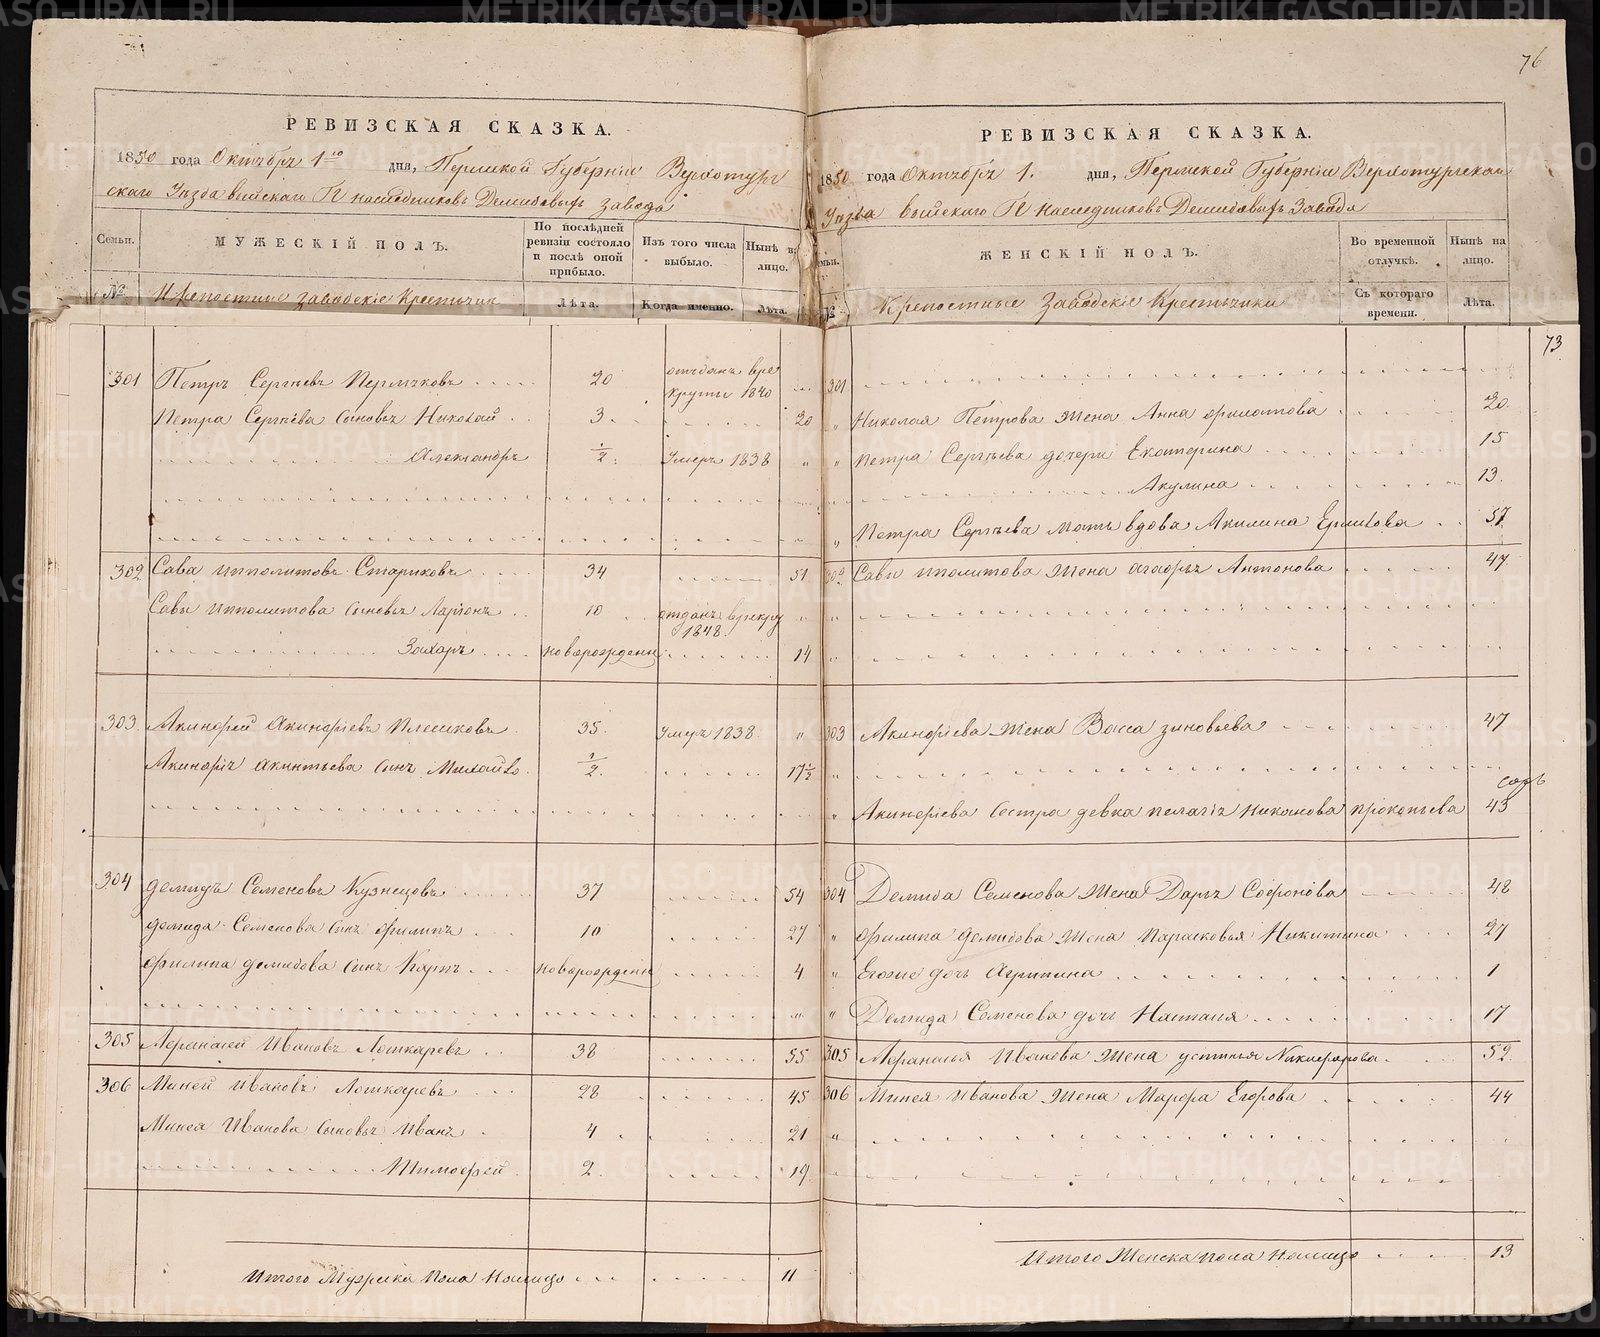 76
РЕВИЗСКАЯ СКАЗКА.
1850 года Октября 1го дня, Пермской Губернии Верхотурь
скаго Уезда выйскаго Гг наследниковъ Демидовыхъ завода
Семьи. МУЖЕСКІЙ ПОЛЪ. По послѣдней ревизіи состояло и послѣ оной прибыло. Изъ того числа выбыло. Нынѣ на лицо.
№. Крепостные заводскіе Крестьяне Лѣта. Когда именно. Лѣта.
301 Петръ Сергѣевъ Пермяковъ 20 отъданъ вре
круты 1840
Петра Сергѣева сыновья Николай 3 20
Александръ ½ Умеръ 1838 "
302 Сава Ипполитовъ Стариковъ 34 51
Савы Ипполитова сыновья Ларіонъ 10 отданъ врекру "
1848
Захаръ новорожденн 14
303 Акинфей Акинфіевъ Плешковъ 35 Умеръ 1838 "
Акинфія Акинтьева сынъ Михайло ½ 17½
304 Демидъ Семеновъ Кузнецовъ 37 54
Демида Семенова сынъ Филипъ 10 27
Филипа Демидова сынъ Карпъ новорожденн 4
305 Афанасей Ивановъ Лошкаревъ 38 55
306 Миней Ивановъ Лошкаревъ 28 45
Минея Иванова сыновья Иванъ 4 21
Тимофей 2 19
Итого Мужеска пола налицо 11
РЕВИЗСКАЯ СКАЗКА.
1850 года Октября 1. дня, Пермской Губерніи Верхотурскаго
Уезда выйскаго Гг наследниковъ Демидовыхъ Завода
Семьи. ЖЕНСКІЙ ПОЛЪ. Во временной отлучкѣ. Нынѣ на лицо.
№ Крепостные Заводскіе Крестьянки Съ котораго времени. Лѣта.
73
301
" Николая Петрова жена Анна Филатова 20
" Петра Сергѣева дочери Екатерина 15
Акулина 13
" Петра Сергѣева мать вдова Акилина Ермилова 57
302 Савы Иполитова жена Агафья Антонова 47
"
"
303 Акинфіева жена Васса Зиновьева 47
"
" Акинфіева сестра девка Пелагія Никонова Прокопьева 43
304 Демида Семенова жена Дарья Софронова 48
" Филипа Демидова жена Парасковья Никитина 27
" Егоже дочь Агрипина 1
" Демида Семенова дочь Наталья 17
305 Афанасья Иванова жена Устинья Никифорова 52
306 Минея Иванова жена Марфа Егорова 44
"
Итого Женска пола налицо 13